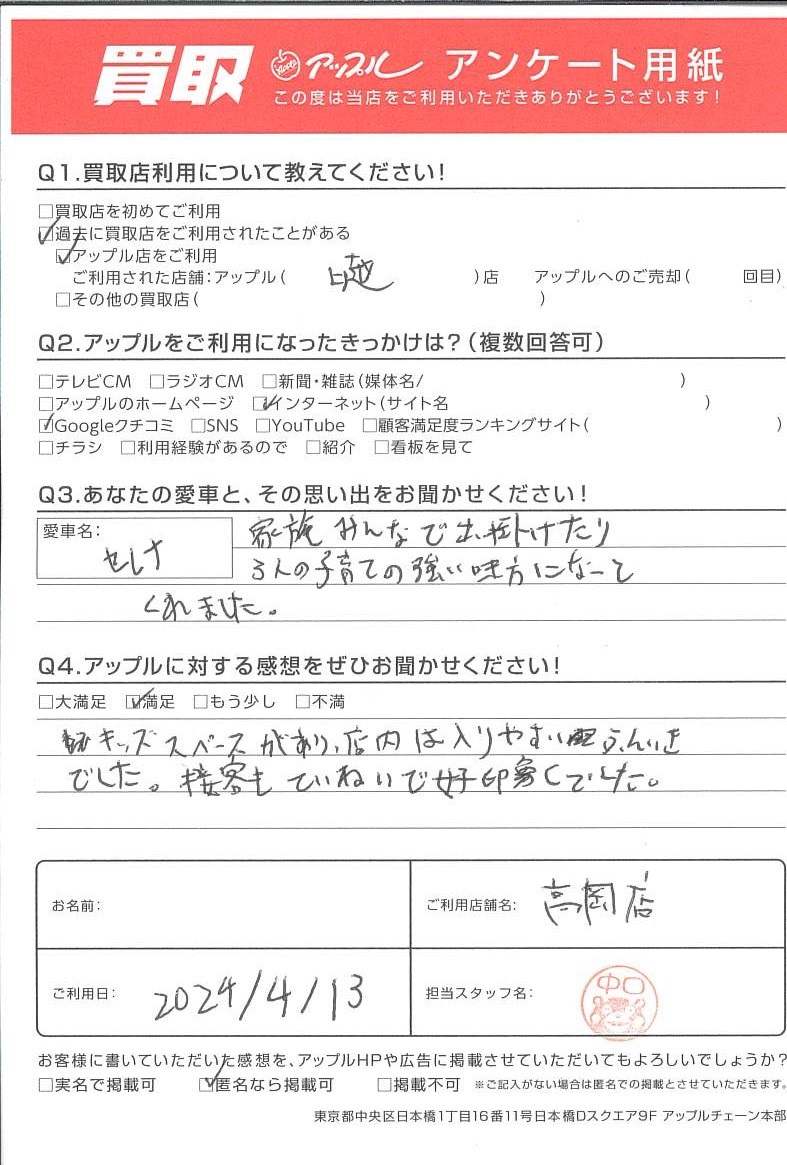 買取 Apple アップル アンケート用紙
この度は当店をご利用いただきありがとうございます!
Q1.買取店利用について教えてください!
□買取店を初めてご利用
☑過去に買取店をご利用されたことがある
☑アップル店をご利用
ご利用された店舗:アップル( 上越 )店 アップルへのご売却( 回目)
□その他の買取店( )
Q2.アップルをご利用になったきっかけは?(複数回答可)
□テレビCM □ラジオCM □新聞・雑誌(媒体名/ )
□アップルのホームページ ☑インターネット(サイト名 )
☑Googleクチコミ □SNS □YouTube □顧客満足度ランキングサイト( )
□チラシ □利用経験があるので □紹介 □看板を見て
Q3.あなたの愛車と、その思い出をお聞かせください!
愛車名: セレナ
家族みんなで出掛けたり
3人の子育ての強い味方になって
くれました。
Q4.アップルに対する感想をぜひお聞かせください!
□大満足 ☑満足 □もう少し □不満
キッズスペースがあり、店内は入りやすいふんいき
でした。接客もていねいで好印象でした。
お名前:
ご利用店舗名: 高岡店
ご利用日: 2024/4/13
担当スタッフ名: 中口
お客様に書いていただいた感想を、アップルHPや広告に掲載させていただいてもよろしいでしょうか?
□実名で掲載可 ☑匿名なら掲載可 □掲載不可 ※ご記入がない場合は匿名での掲載とさせていただきます。
東京都中央区日本橋1丁目16番11号日本橋Dスクエア9F アップルチェーン本部